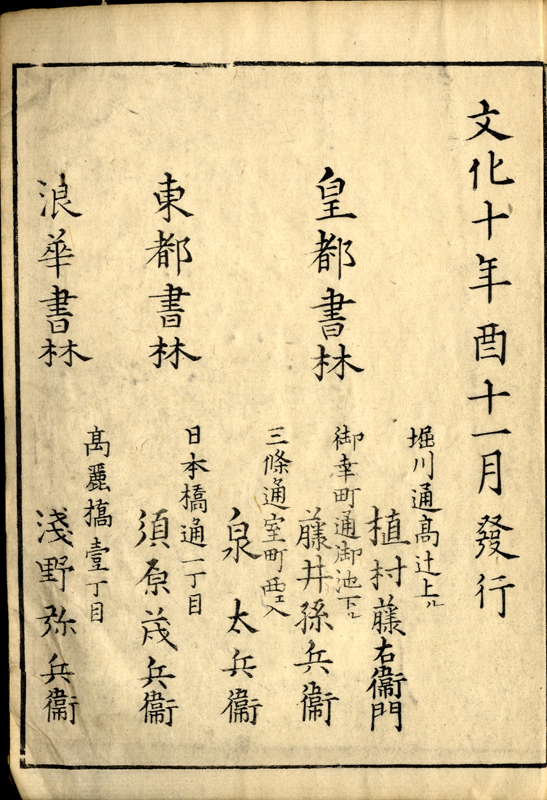 文化十年酉十一月發行
皇都書林
堀川通高辻上ル
植村藤右衞門
御幸町通御池下ル
藤井孫兵衞
三條通室町西エ入
泉太兵衞
東都書林
日本橋通一丁目
須原茂兵衞
浪華書林
高麗橋壹丁目
淺野弥兵衞